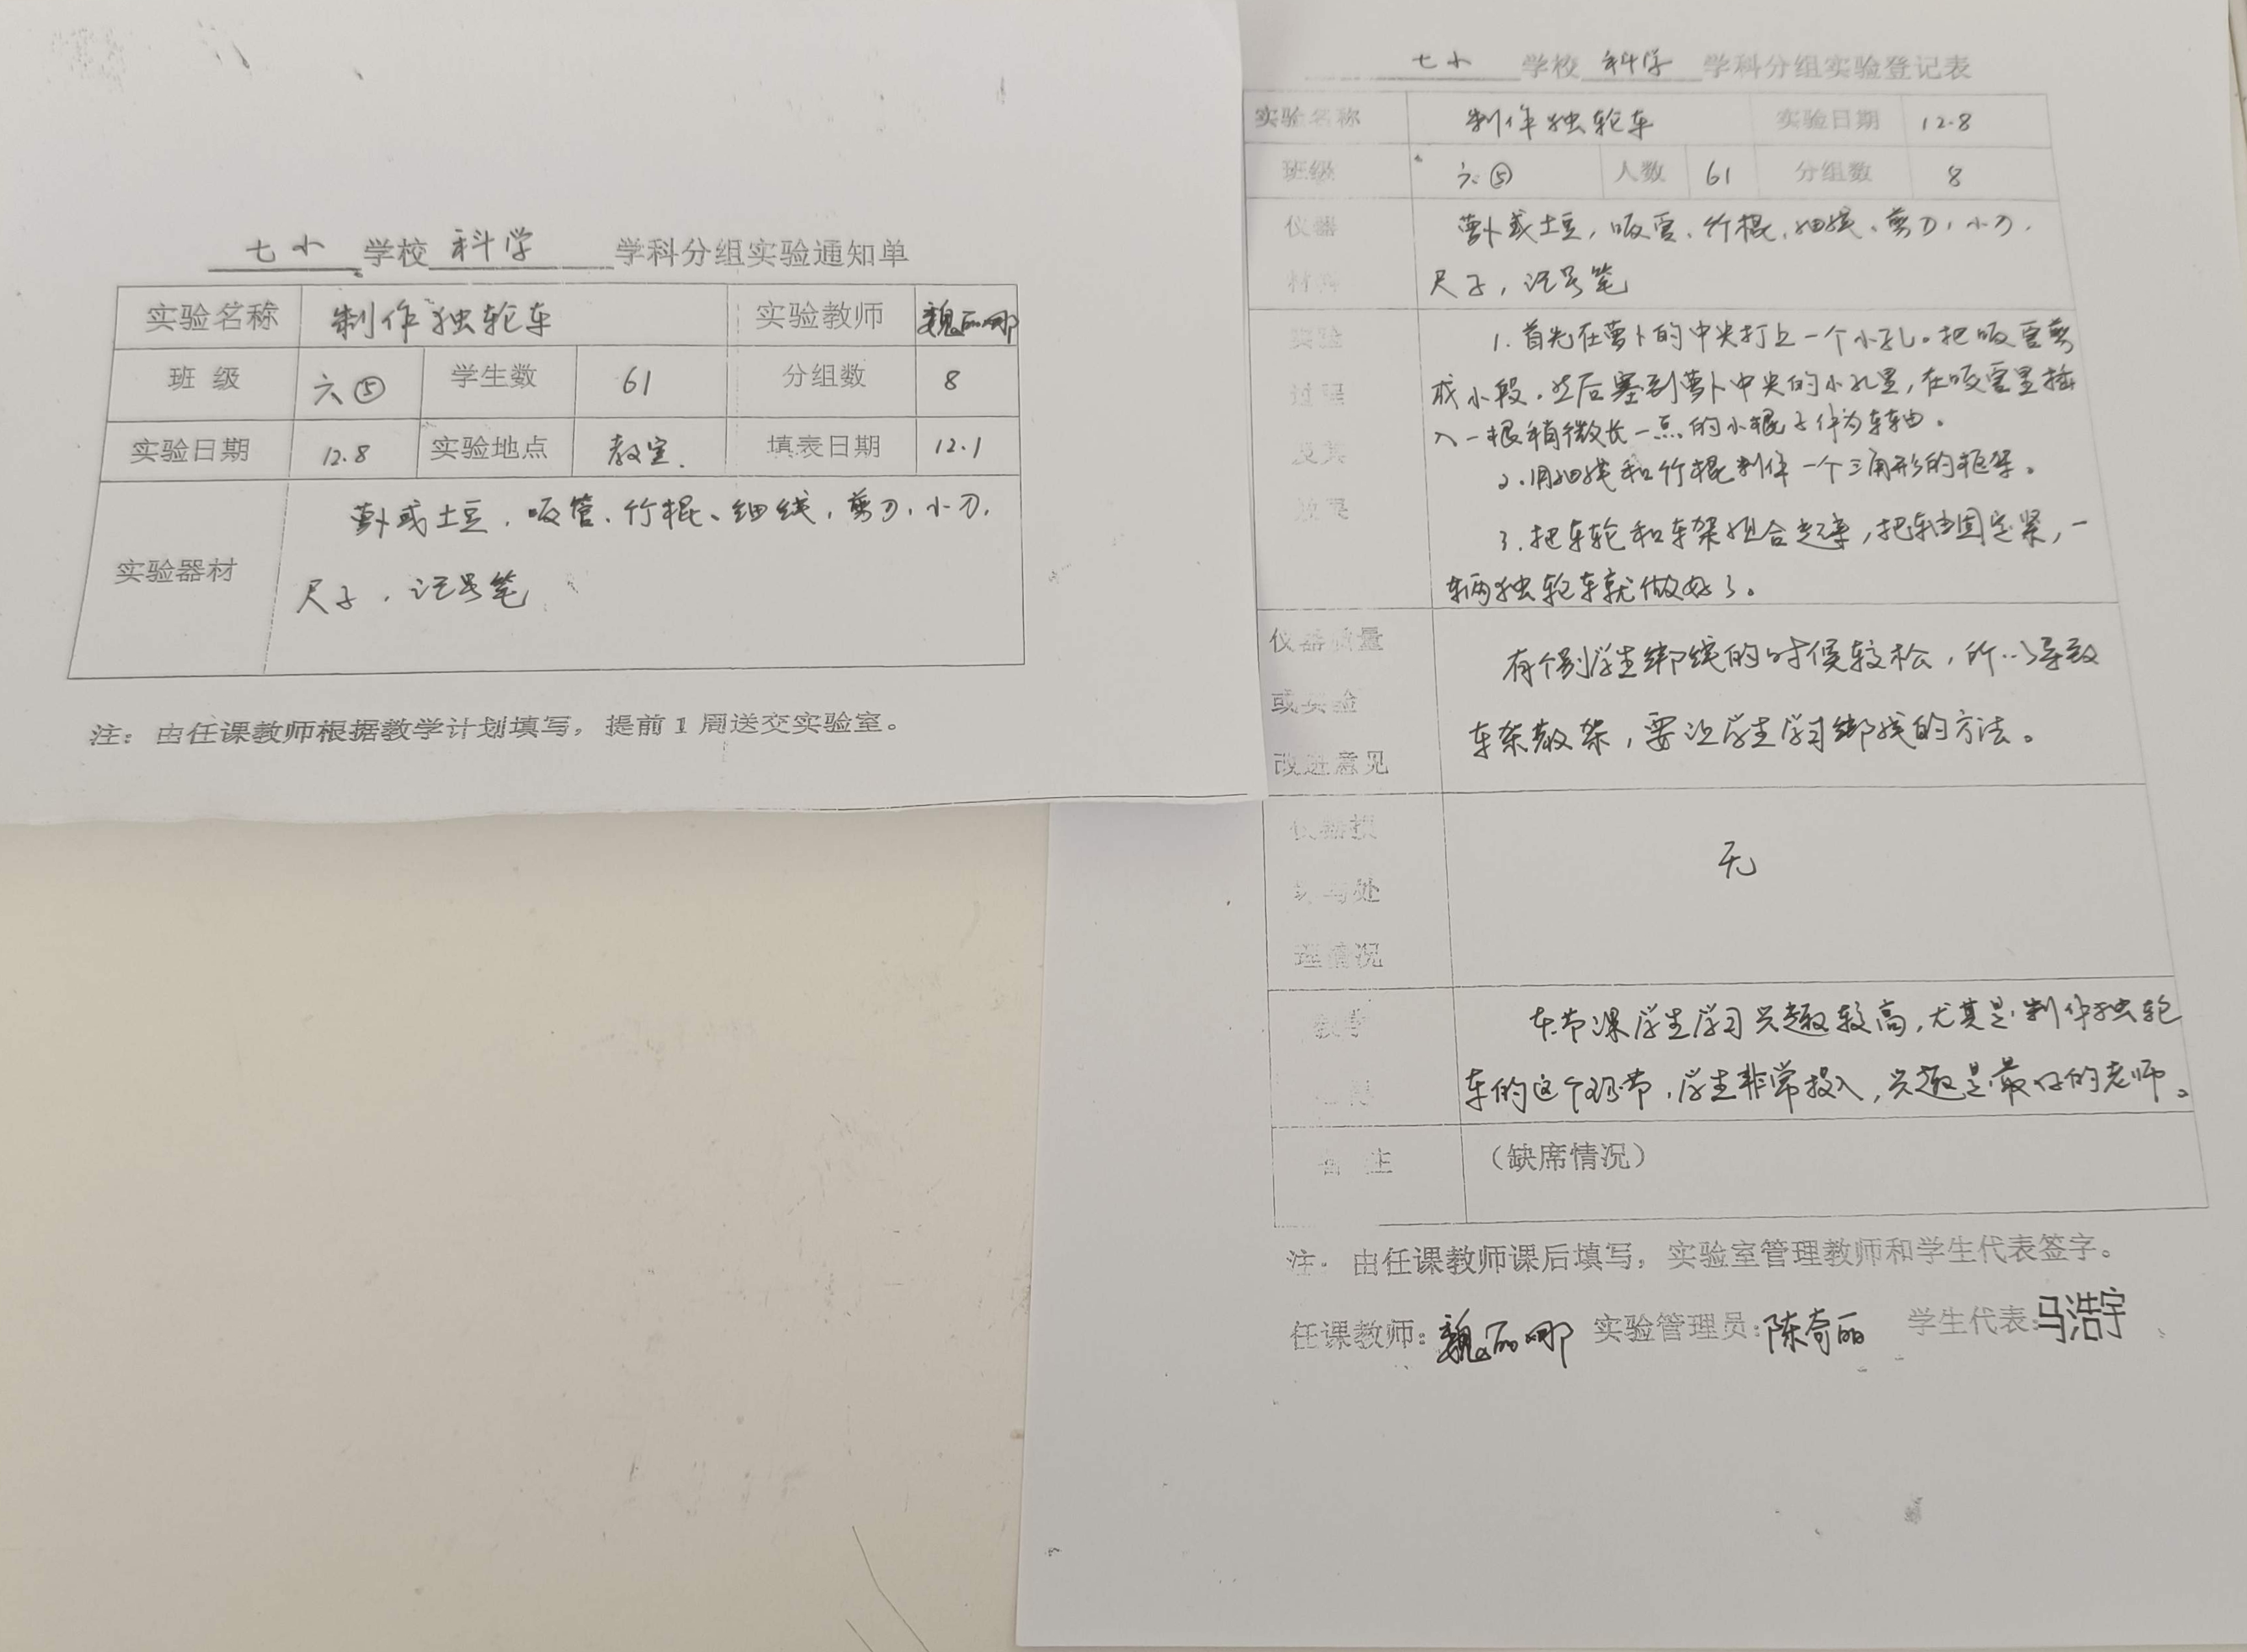 七小 学校 科学 学科分组实验通知单
实验名称 制作独轮车 实验教师 魏丽娜
班 级 六⑤ 学生数 61 分组数 8
实验日期 12.8 实验地点 教室. 填表日期 12.1
实验器材
萝卜或土豆、吸管、竹棍、细线、剪刀、小刀、
尺子、记号笔
注：由任课教师根据教学计划填写，提前1周送交实验室。
七小 学校 科学 学科分组实验登记表
实验名称 制作独轮车 实验日期 12.8
班级 六⑤ 人数 61 分组数 8
仪器 萝卜或土豆、吸管、竹棍、细线、剪刀、小刀、
材料 尺子，记号笔
实验 1.首先在萝卜的中央打上一个小孔。把吸管剪
过程 成小段，然后塞到萝卜中央的小孔里，在吸管里插
入一根稍微长一点的小棍子作为车轴。
及其 2.用细线和竹棍制作一个三角形的框架。
效果 3.把车轮和车架组合起来，把车轴固定紧，一
辆独轮车就做好了。
仪器质量 有个别学生绑线的时候较松，所以导致
或实验 车架散架，要让学生学习绑线的方法。
改进意见
仪器损
坏与处 无
理情况
教学 本节课学生学习兴趣较高，尤其是制作独轮
车的这个环节，学生非常投入，兴趣是最好的老师。
备 注 （缺席情况）
注：由任课教师课后填写，实验室管理教师和学生代表签字。
任课教师：魏丽娜 实验管理员：陈奇丽 学生代表：马浩宇